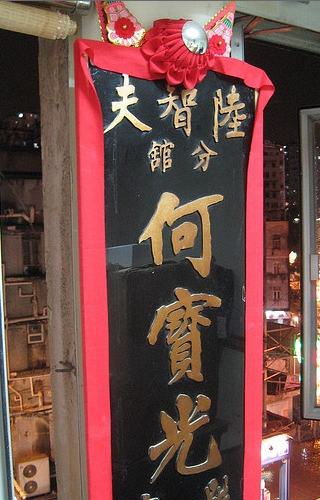 陸智夫
分舘
何寶光